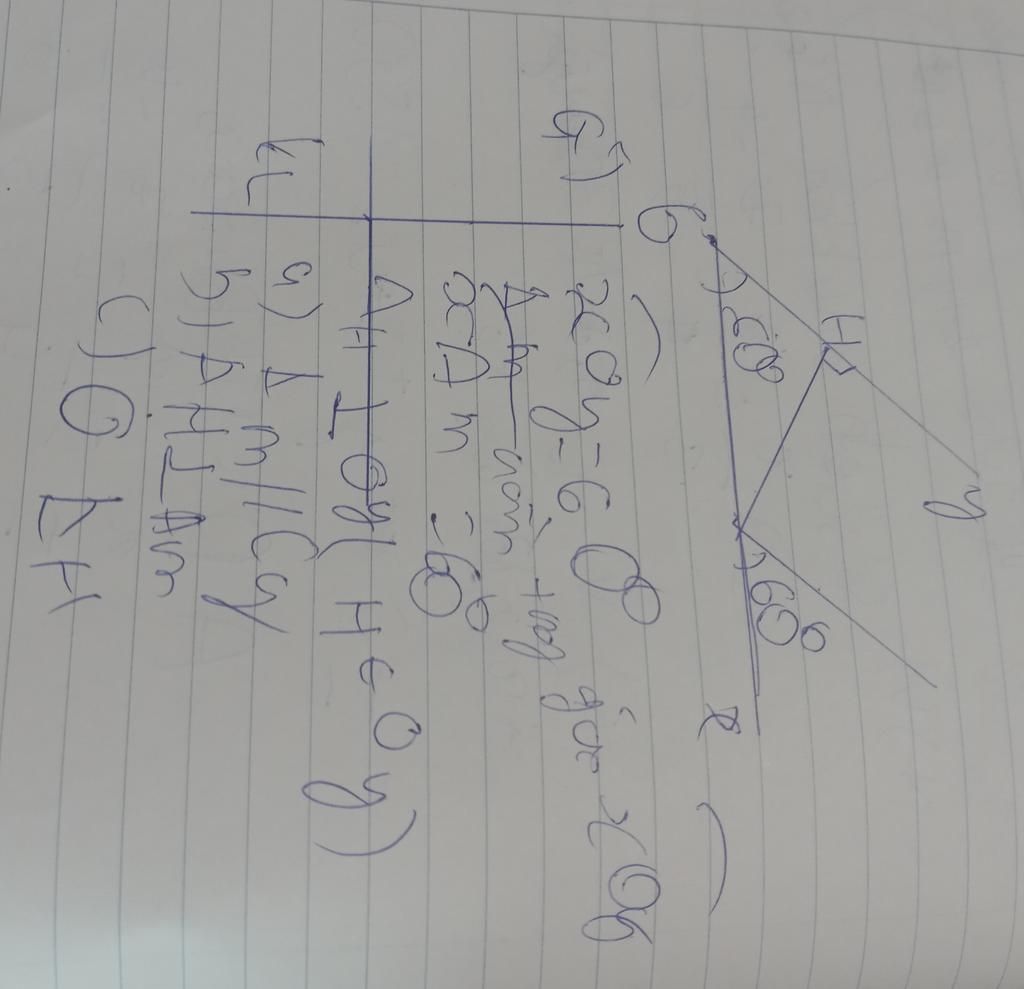 y
H
O 60° 60° x
GT xOy = 60°
Am nằm trong góc xOy
xAm = 60°
AH ⊥ Oy (H ∈ Oy)
KL a) Am // Oy
b) AH ⊥ Am
c) OAH